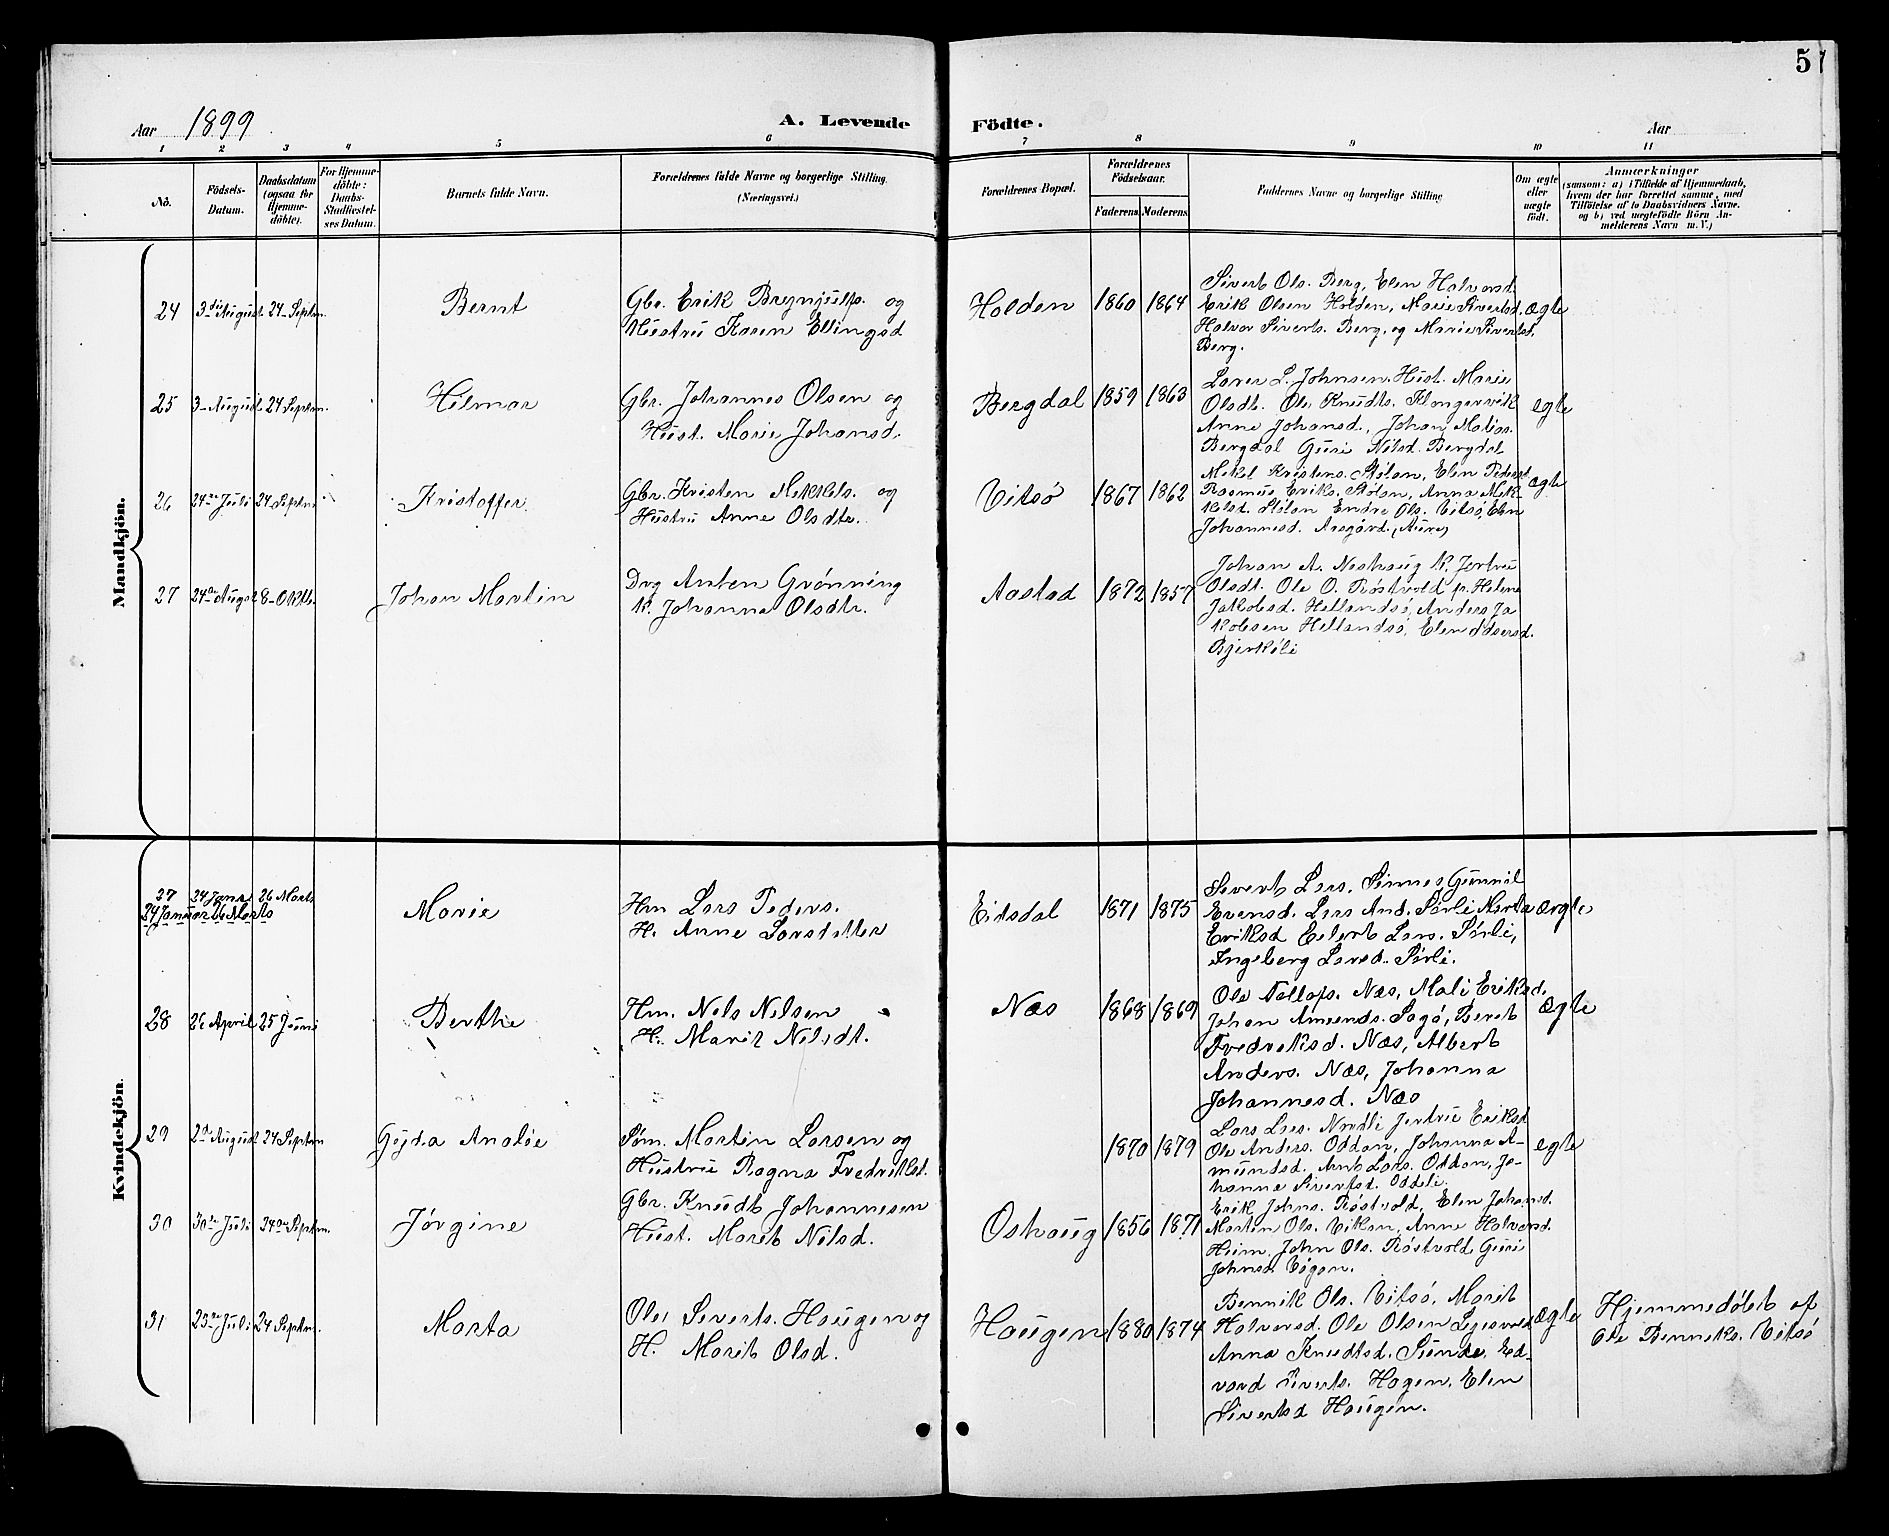 57
Aar 1899
A. Levende
Födte.
Aar
1 2 3 4 5 6 7 8 9 10 11
No.
Födsels-
Datum.
Daabsdatum
(ogsaa for
Hjemme-
döbte).
For Hjemme-
döbte:
Daabs-
Stadfæstel-
ses Datum.
Barnets fulde Navn.
Forældrenes fulde Navne og borgerlige Stilling
(Næringsvei.)
Forældrenes Bopæl.
Forældrenes
Födselsaar.
Faderens
Moderens
Faddernes Navne og borgerlige Stilling
Om ægte
eller
uægte
födt.
Anmærkninger
(saasom: a) i Tilfælde af Hjemmedaab,
hvem der har forrettet samme, med
Tilföielse af to Daabsvidners Navne.
og b) ved uægtefödte Börn An-
melderens Navn m. V.)
Mandkjön.
24 3die August 24-Septem. Bernt
Gbr. Erik Brynjulfs. og
Hustru Karen Ellingsd
Holden 1860 1864
Sivert Ols. Berg, Elen Halvorsd.
Erik Olsen Holden, Marie Sivertsd. ægte
Halvor Siverts. Berg, og Marie Sivertsd.
Berg.
25 3-August 24 Septem. Hilmar
Gbr. Johannes Olsen og
Hust. Marie Johansd.
Bergdal 1859 1863
L. Johnsen. Hust. Marie
Olsdt. Ole Knudts.
Anne Johansd., Johan Matias.
Bergdal Guri Nilsd. Bergdal
egte
26 24de Juli 24 Septem Kristoffer.
Gbr. Kristen Mekkels. og
Hustru Anne Olsdtr.
Vitsö 1867 1862
Mekel Kristens. Stölan, Elen Pedersd
Rasmus Eriks. Stölan, Anna Mek-
kelsd. Stölan Endre Ols. Vitsö, Elen
Johannesd. Aasgård. (Aure)
ægte
27 24de August 8-Oktb. Johan Martin
Drg Anten Grönning
K. Johanna Olsdtr.
Aastad 1872 1857
Johan A. Neshaug K. Jertru
Olsdt. Ole O. Röstvold p. Helene
Jakobsd. Hellandsö, Anders Ja
kobsen Hellandsö, Elen
Bjerkeli
Kvindekjön.
27 24 Janr 26 Marts
24 Januar 26 Marts
Marie
Hm Lars Peders.
H. Anne Larsdatter
Eidsdal 1871 1875
Sivert Lars. Sinnes Gunnil
Evensd. Lars And. Sörli Marta
Eriksd Eilert Lars. Sörli,
Ingeberg Larsd. Sörli.
ægte
28 26 April 25 Juni Berthe
Hm. Nels Nilsen
H. Marit Nilsdt.
Næs 1868 1869
Ole Tollefs. Næs, Mali Eriksd.
Johan Amunds. Sagö, Beret
Fredriksd. Næs, Albert
Anders. Næs, Johanna
Johannesd. Næs
ægte
29 2de August 24 Septem Gyda Analöe
Söm. Martin Larsen og
Hustru Ragna Fredriksd.
1870 1879
Lars Lars. Nordli Jertru Eriksd
Ole Anders. Oddan, Johanna A-
mundsd. Arnt Lars. Oddan, Jo-
hanna Sivertsd. Oddli.
egte
30 30te Juli 24de Septem. Jörgine
Gbr. Knudt Johannesen
Hust. Marit Nilsd.
Oshaug 1856 1871
Erik Johns. Röstvold, Elen Johansd.
Martin Ols. Viken, Anne Halvorsd.
Heim, John Ols. Röstvold Guri
Johnsd Vågen.
31 23de Juli 24 Septem. Marta
Ole Siverts. Haugen og
H. Marit Olsd.
Haugen 1880 1874
Bennik Ols. Vitsö, Marit
Halvorsd. Ole Olsen
Anna Knudtsd. Sende, Ed-
vard Siverts. Hagen, Elen
Sivertsd Haugen.
ægte
Hjemmedöbt af
Ole Benneks. Vitsö